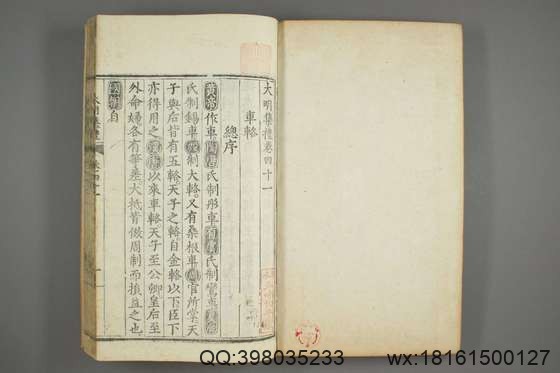 大明集禮卷四十一
車輅
總序
黃帝作車陶唐氏制彤車有虞氏制鸞車夏后
氏制鉤車殷制大輅又有桑根車周官所掌天
子與后皆有五輅天子之輅自金輅以下臣下
亦得用之漢唐以來車輅天子至公卿皇后至
外命婦各有等差大抵皆倣周制而損益之也
國朝自
QQ:398035233
wx:18161500127